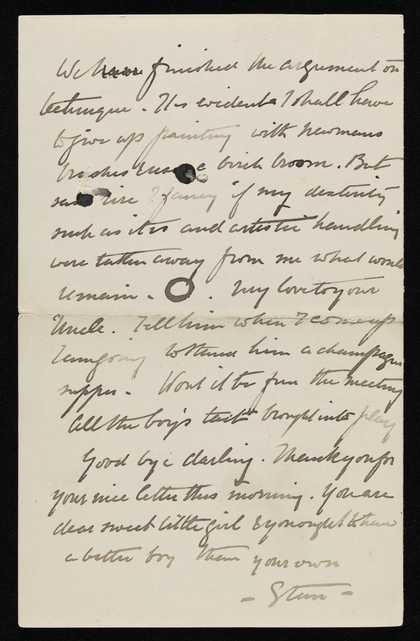 We have finished the argument on
technique. It is evident I shall have
to give up painting with Newmans
brushes & use a birch broom. But
I fancy if my dexterity
such as it is and artistic handling
were taken away from me what would
remain. O. My love to your
Uncle. Tell him when I come up
I am going to stand him a champagne
supper. Wont it be fun the meeting
All the boy's tact brought into play
Good bye darling. Thank you for
your nice letter this morning. You are
dear sweet little girl & you ought to have
a better boy than your own